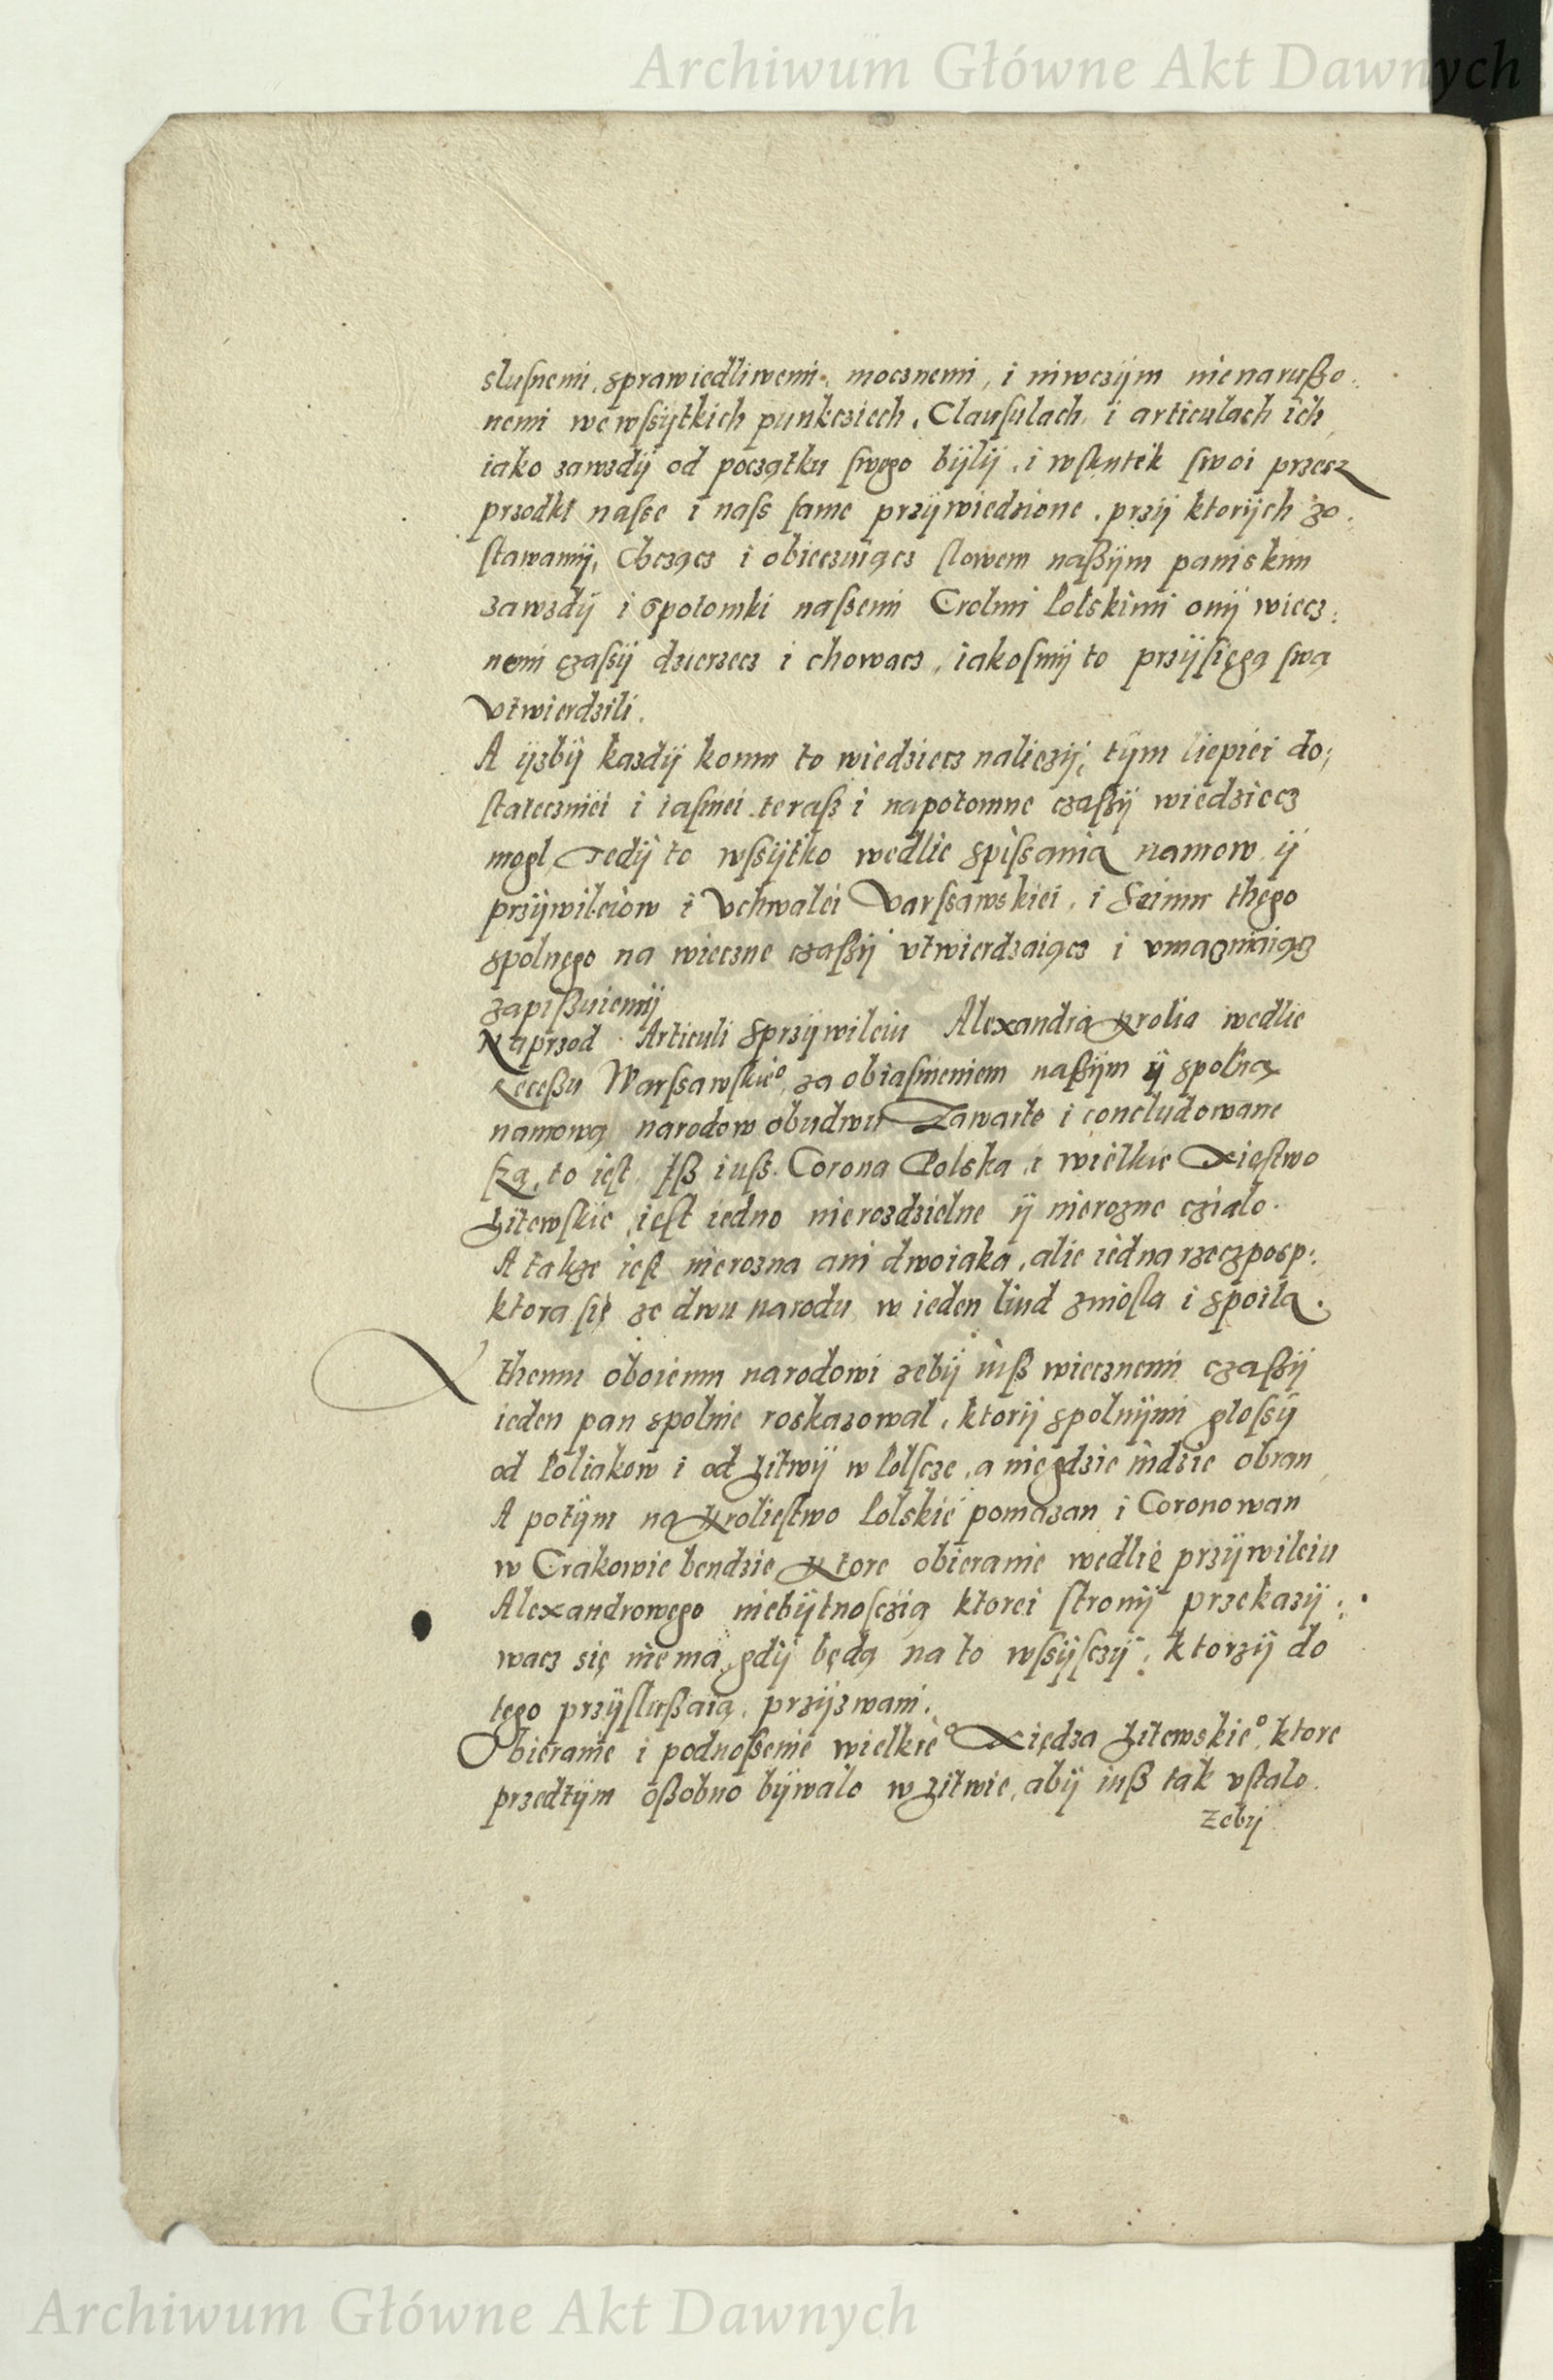 Archiwum Główne Akt Dawnych
slusnemi, sprawiedliwemi, mocznemi, i niwczijm nienarußo:
nemi we wssijtkich punkcziech, Clausulach, i articulach ich,
iako zawzdij od początku swego bijlij, i wskutek swoi przecz
przodki nasse i nass same przijwiedzione, przij ktorijch zo:
stawamij, Chczącz i obieczuiącz slowem naßijm paniskim
zawzdij i spotomki nassemi Crolmi Polskimi onij wiecz:
nemi czasij dzierzecz i chowacz, iakosmij to przijsięgą swą
Vtwierdzili.
A ijzbij kazdij komu to wiedziecz naliezij, tijm liepiei do:
stateczniei i iasniei teraß i napotomne czaßij wiedziecz
mogl, Tedij to wssijtko wedlie spissania namow ij
przijwileiow i Vchwalei Varssawskiei, i Seimu thego
spolnego na wieczne czaßij vtwierdzaiącz i vmacniaiącz
zapißuiemij
Naprzod Articuli sprzijwileiu Alexandra Krolia wedlie
Recessu Warssawskie⁰, za obiasnieniem naßijm ij spolną
namową narodow obudwu Zawarte i concludowane
są, to iest, Iß iuß Corona Polska i wielkie Xięstwo
Litewskie iest iedno nierozdzielne ij nierozne cziało.
A takze iest nierozna ani dwoiaka, alie iedna rzeczposp:
ktora się ze dwu narodu w ieden liud zniosla i spoila.
themu oboiemu narodowi zebij iuß wiecznemi czaßij
ieden pan spolnie roskazowal, ktorij spolnijmi glossij
od Poliakow i od Litwij w Polscze, a niegdzie indzie obran,
A potijm na Kroliestwo Polskie pomazan i Coronowan
w Crakowie bendzie Ktore obieranie wedlie przijwileiu
Alexandrowego niebijtnoscią ktorei stronij przekazij:
wacz się niema, gdij będą na to wssijsczij, ktorzij do
tego przijslußaią, przijzwani.
Obieranie i podnoßenie wielkie⁰ Xiędza Litewskie⁰, ktore
przedtijm oßobno bijwalo w Litwie, abij iuß tak vstalo.
Zebij
Archiwum Główne Akt Dawnych